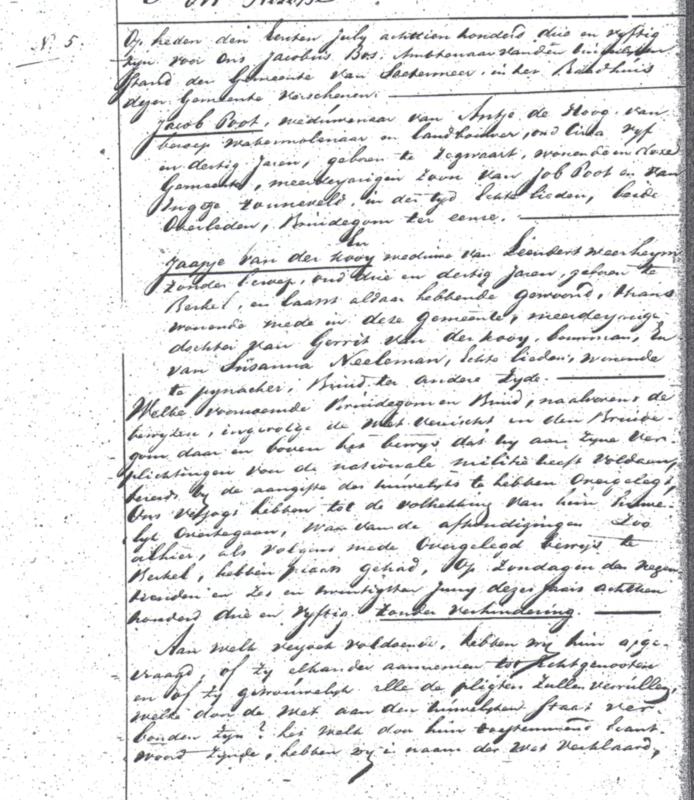 N. 5.
Op heden den Eersten July achttien honderd drie en vyftig
zyn voor Ons Jacobus Bos. Ambtenaar van den
Stand der Gemeente van Soetermeer, in het Raadhuis
dezer Gemeente verschenen.
Jacob Poot, weduwenaar van Antje de Hoog. van
beroep watermolenaar en landbouwer, oud circa vyf
en dertig Jaren, geboren te Zegwaart, wonende in deze
Gemeente, meerderjarigen Zoon van Job Poot en van
Ingetje Zonneveld, in der tyd Echte lieden, beide
Overleden, Bruidegom ter eenre.
En
Jaapje van der Kooy weduwe van Leendert
zonder beroep, oud drie en dertig Jaren, geboren te
Berkel, en laatst aldaar hebbende gewoond, thans
wonende mede in deze Gemeente, meerderjarige
dochter van Gerrit van der Kooy, bouwman, En
van Susanna Neeleman, Echte lieden, wonende
te pynacker, Bruid ter andere Zyde.
Welke voornoemde Bruidegom en Bruid, na alvorens de
bewyzen, ingevolge de Wet vereischt en den Bruide-
gom daar en boven het bewys dat hy aan Zyne Ver-
plichtingen van de nationale militie heeft voldaan,
bereids by de aangifte des huwelyks te hebben Overgelegd,
Ons verzogt hebben tot de voltrekking van hun huwe-
lyk Overtegaan, waar van de afkondigingen Zoo
alhier, als volgens mede Overgelegd bewys te
Berkel, hebben plaats gehad, Op Zondagen den Negen-
tienden en Zes en twintigsten Juny dezes Jaars achttien
honderd drie en vyftig. Zonder verhindering.
Aan welk verzoek voldoende, hebben wy hun afge-
vraagd, of Zy elkander aannemen tot Echtgenooten
en of Zy getrouwelyk alle de pligten Zullen vervullen,
welke door de Wet aan den huwelyken Staat ver-
bonden Zyn? het welk door hun toestemmend beant-
woord Zynde, hebben wy in naam der Wet verklaard,